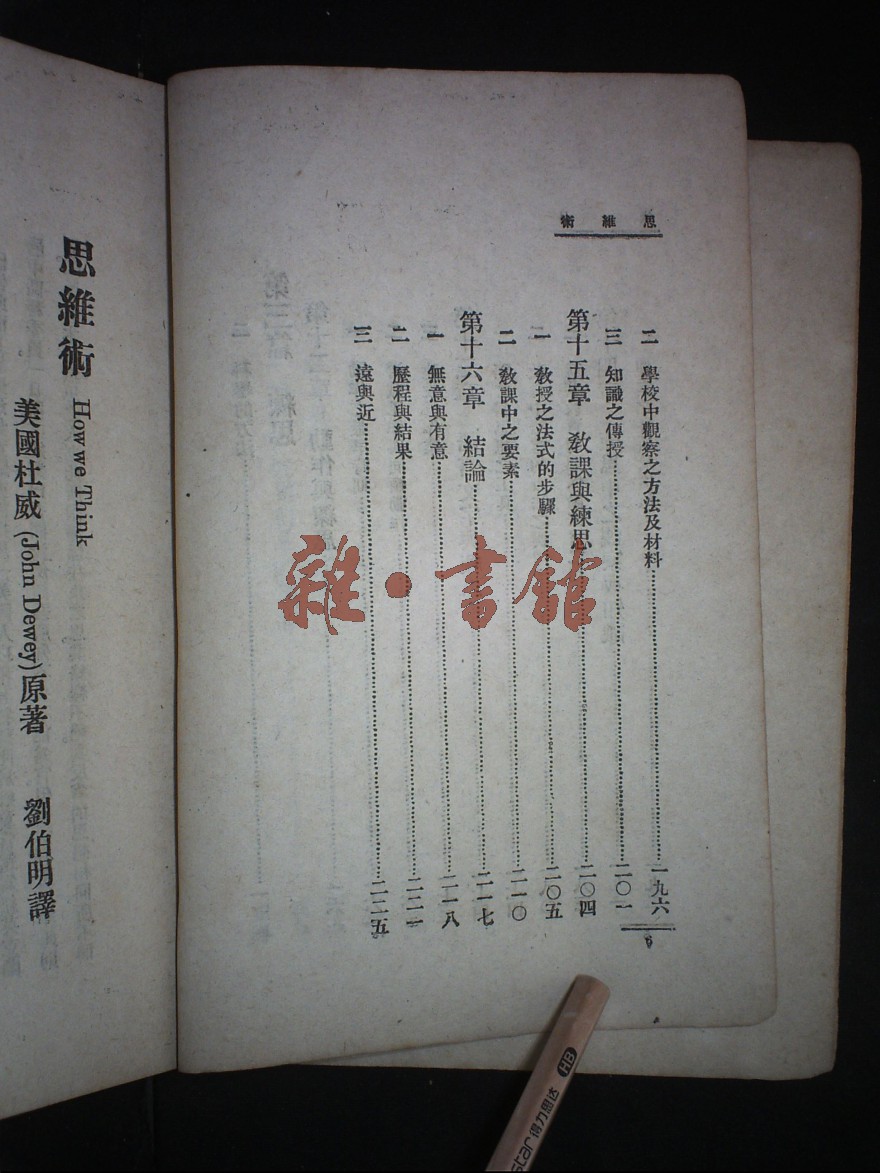 思維術
二 學校中觀察之方法及材料……一九六
三 知識之傳授……二〇一
第十五章 敎課與練思……二〇四
一 敎授之法式的步驟……二〇五
二 敎課中之要素……二一〇
第十六章 結論……二一七
一 無意與有意……二一八
二 歷程與結果……二二一
三 遠與近……二二五
6
思維術 How we Think
美國杜威(John Dewey)原著 劉伯明譯
雜·書館
star 得力思达 HB